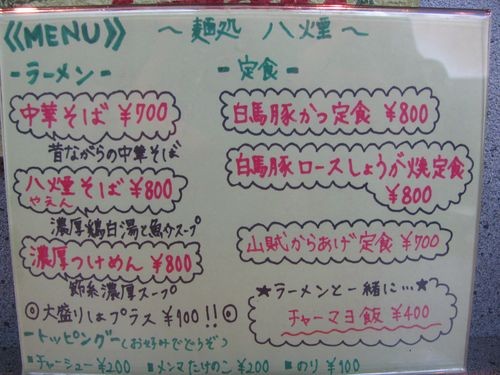 《MENU》 〜麺処 八煙〜
-ラーメン-
中華そば ¥700
昔ながらの中華そば
八煙そば ¥800
やえん
濃厚鶏白湯と魚介スープ
濃厚つけめん ¥800
節系濃厚スープ
◎大盛りはプラス ¥100!!◎
-トッピング-(お好みでどうぞ)
▪チャーシュー ¥200 ▪メンマたけのこ ¥200 ▪のり ¥100
-定食-
白馬豚かつ定食 ¥800
白馬豚ロースしょうが焼定食
¥800
山賊からあげ定食 ¥700
★ラーメンと一緒に…★
チャーマヨ飯 ¥400